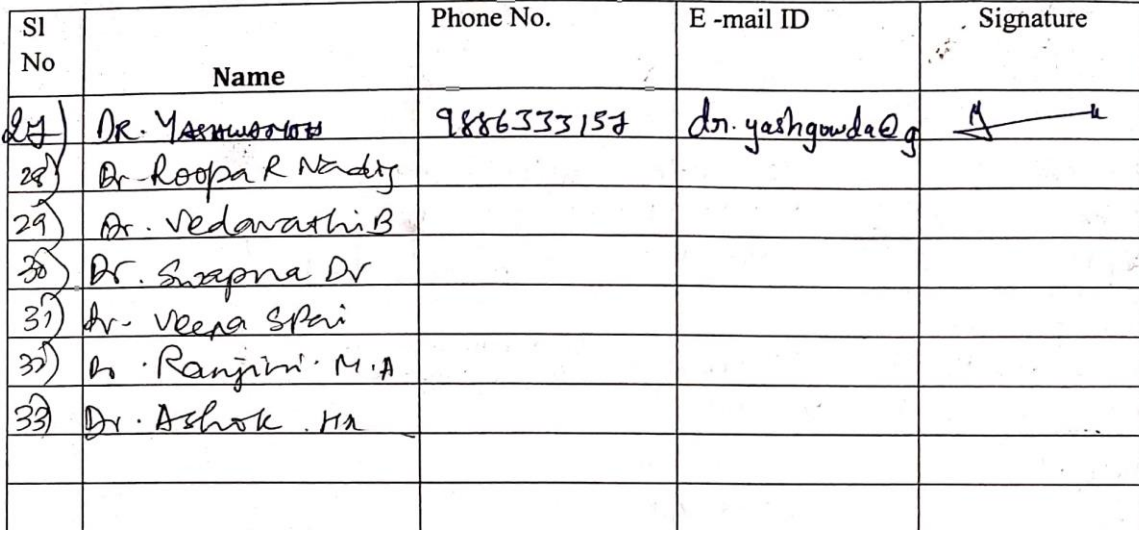 Sl No Name Phone No. E -mail ID Signature
27) DR. YASHWANTH 9886333157 dr.yashgowda@g
28) Dr. Roopa R Nadig
29) Dr. Vedavathi B
30) Dr. Swapna DV
31) Dr. Veena S Pai
32) Dr. Ranjini. M.A
33) Dr. Ashok